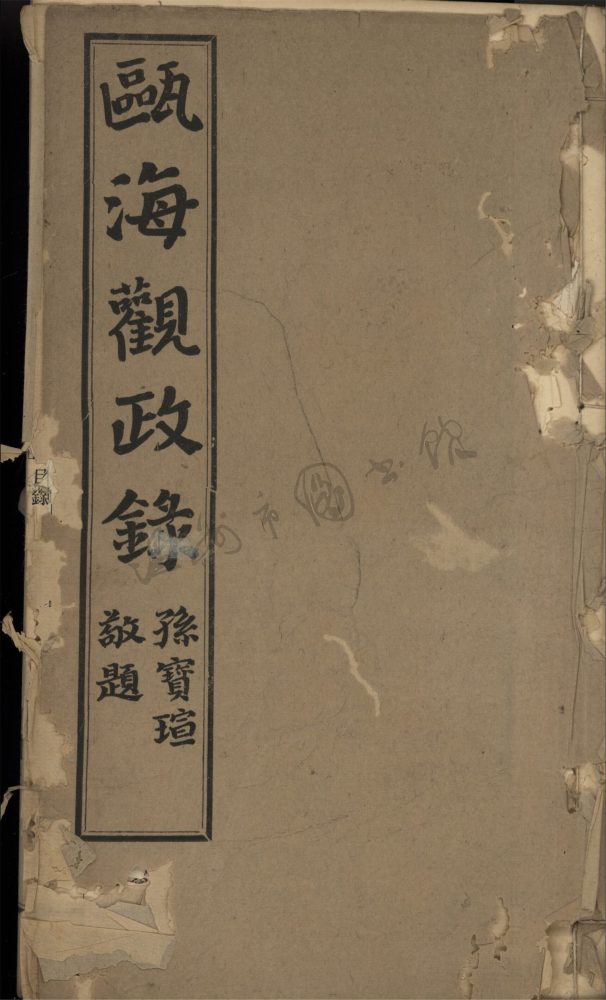 甌海觀政錄
孫寶瑄
敬題
目錄
州市圖書館